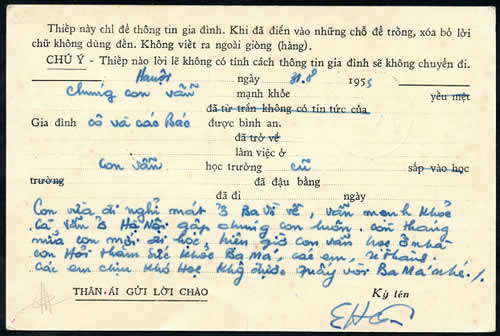 Thiếp này chỉ để thông tin gia đình. Khi đã điền vào những chỗ để trống, xóa bỏ lời
chữ không dùng đến. Không viết ra ngoài giòng (hàng).
CHÚ Ý - Thiếp nào lời lẽ không có tính cách thông tin gia đình sẽ không chuyển đi.
Hanội ngày 31.8 1955
chúng con vẫn mạnh khỏe yếu mệt
đã từ trần không có tin tức của
Gia đình cô và các Bác được bình an.
đã trở về
làm việc ở
Con vẫn học trường cũ sắp vào học
trường đã đậu bằng
đã đi ngày
Con vừa đi nghỉ mát ở Ba Vì về, vẫn mạnh khỏe
Cả vẫn ở Hà Nội gặp chúng con luôn. còn tháng
nữa con mới đi học, hiện giờ con vẫn học ở nhà
con Hỏi thăm sức khỏe Ba Má, các em,
các em chịu khó Học không được quấy với Ba Má nhé./.
THÂN ÁI GỬI LỜI CHÀO Ký tên